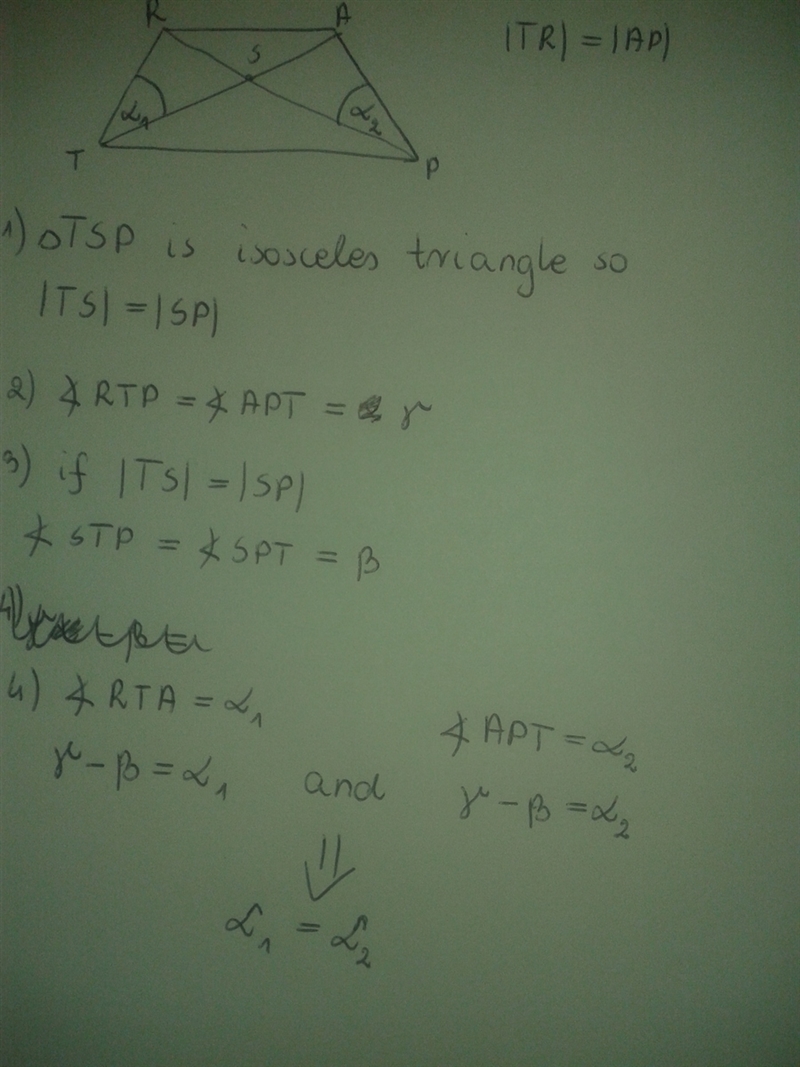 R A |TR| = |AP|
S
α₁ α₂
T P
1) △TSP is isosceles triangle so
|TS| = |SP|
2) ∢ RTP = ∢ APT = γ
3) if |TS| = |SP|
∢ STP = ∢ SPT = β
4) ∢ RTA = α₁ ∢ APT = α₂
γ - β = α₁ and γ - β = α₂
⇓
α₁ = α₂